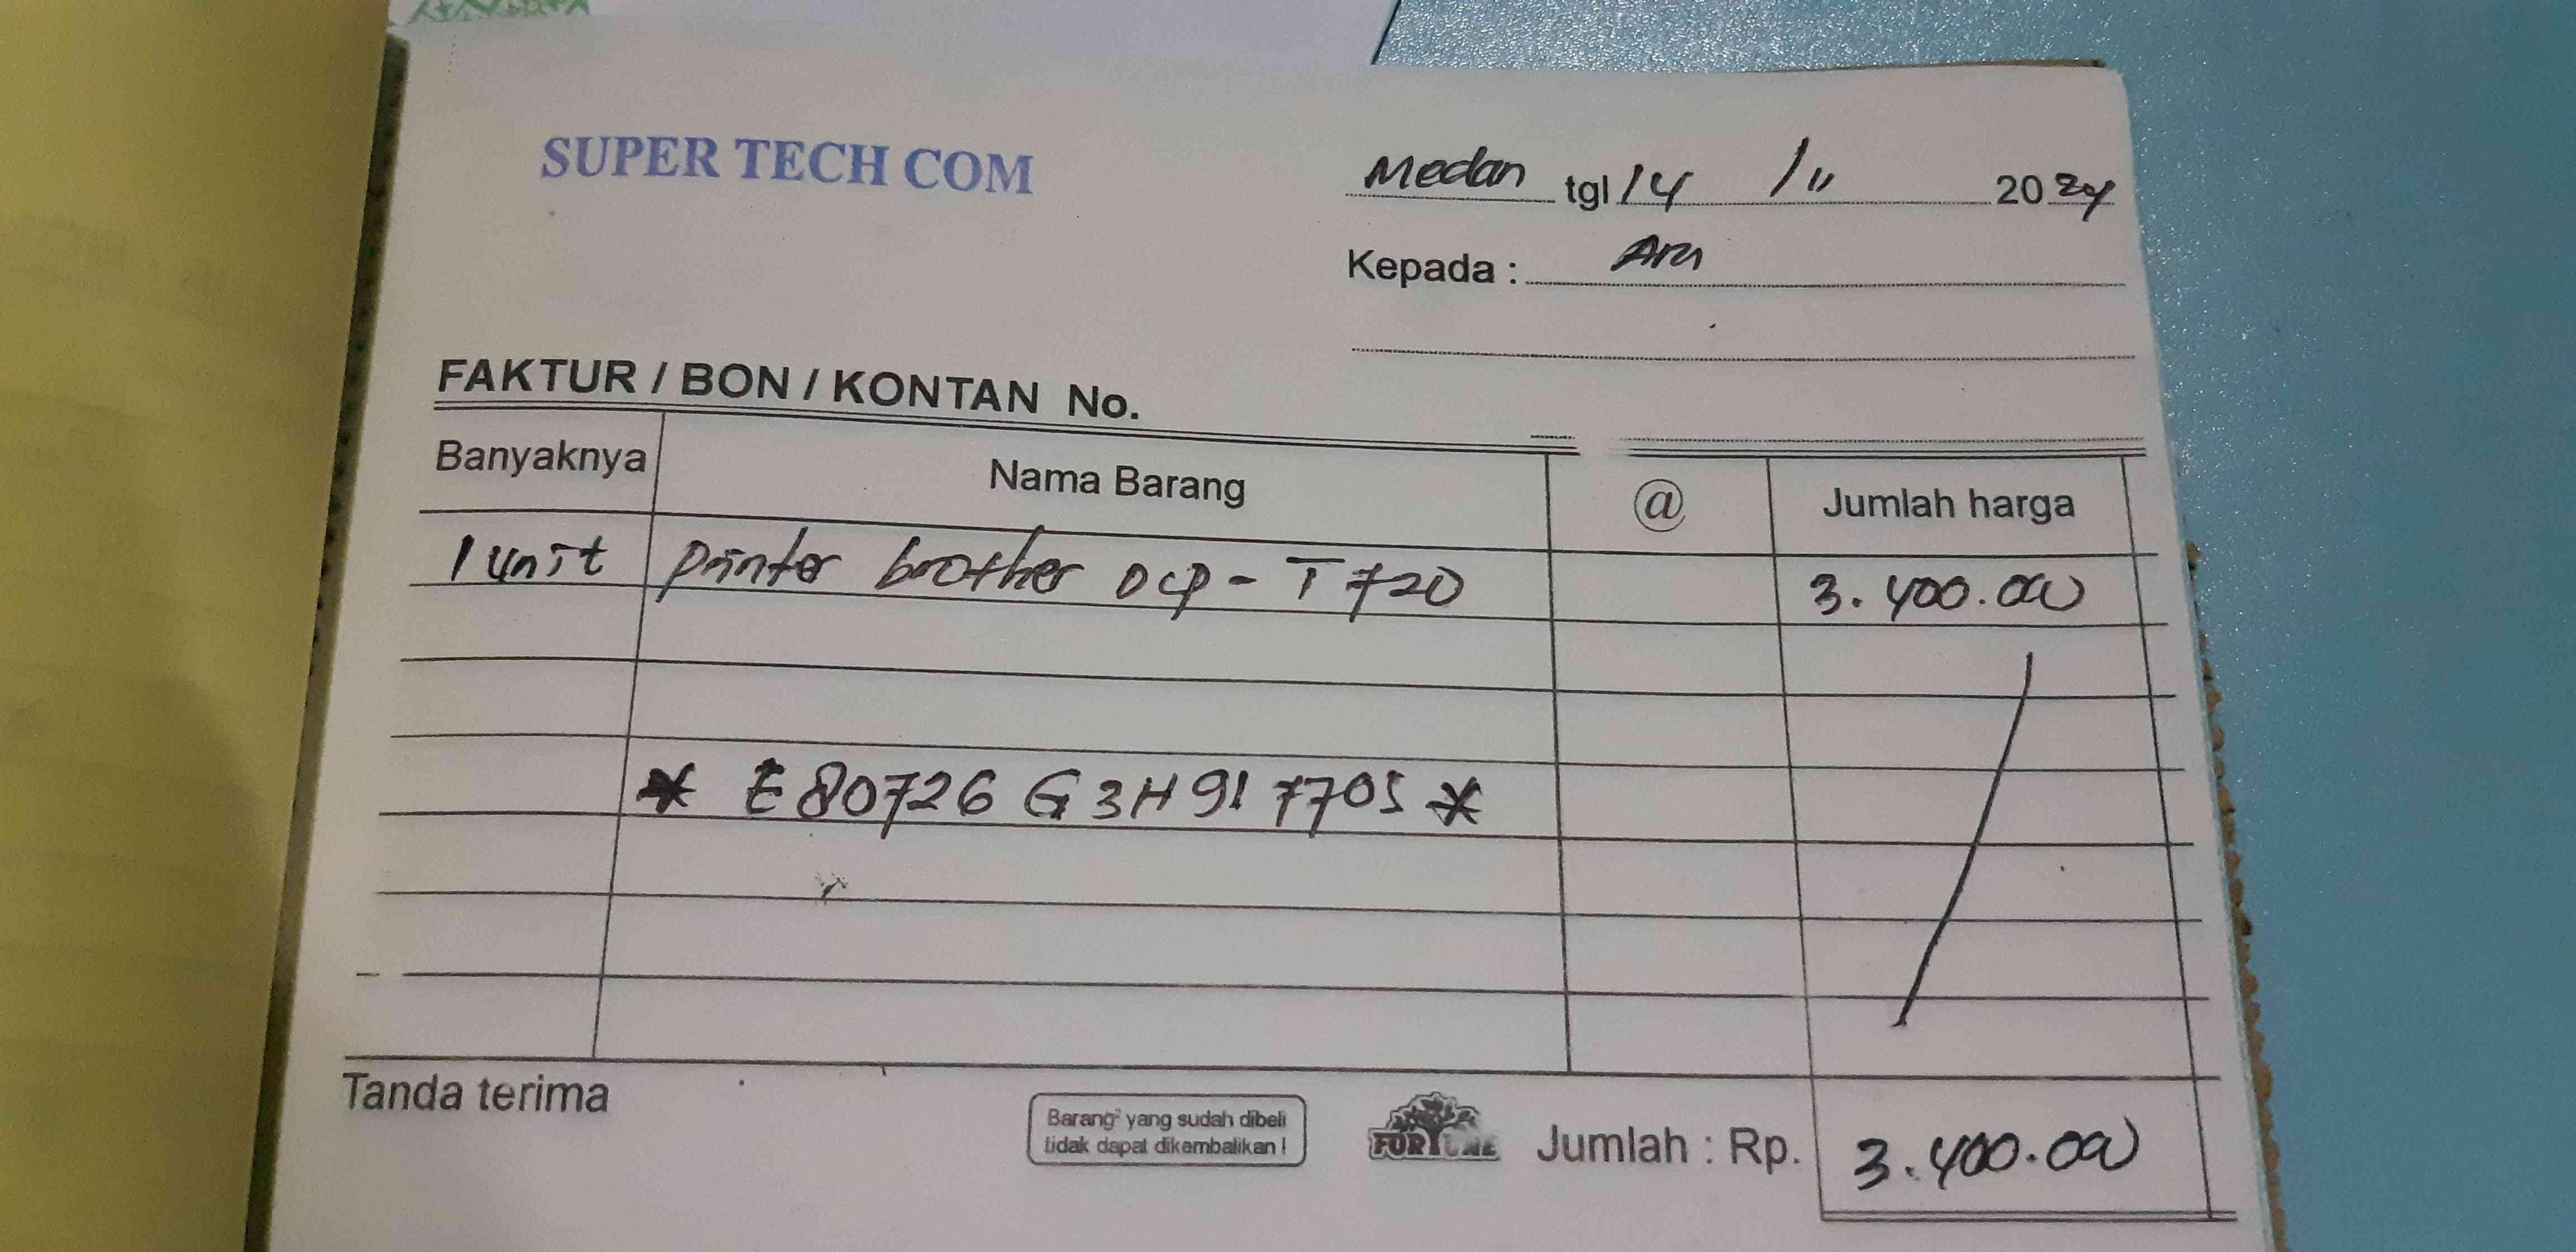 SUPER TECH COM
Medan tgl 14 / 11 2024
Kepada :
FAKTUR / BON / KONTAN No.
Banyaknya Nama Barang @ Jumlah harga
1 unit printer brother DCP - T720 3.400.000
* E80726 G3H917705 *
Tanda terima
Barang² yang sudah dibeli
tidak dapat dikembalikan !
FORTUNE
Jumlah : Rp. 3.400.000